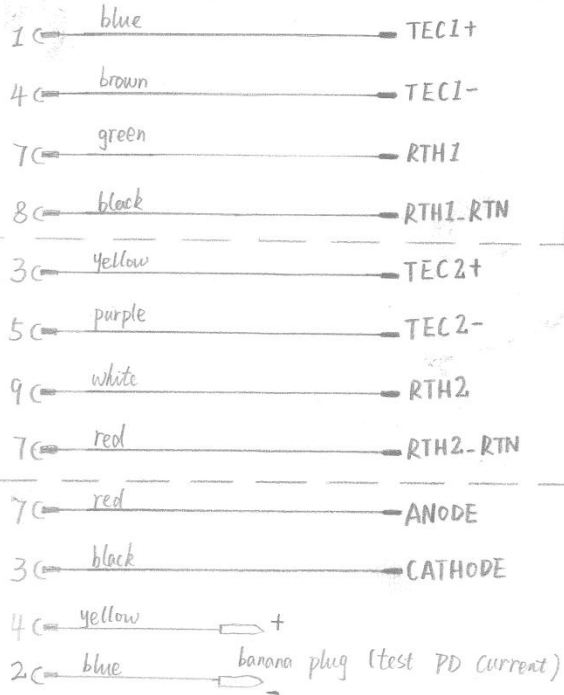 1 blue TEC1+
4 brown TEC1-
7 green RTH1
8 black RTH1_RTN
3 yellow TEC2+
5 purple TEC2-
9 white RTH2
7 red RTH2-RTN
7 red ANODE
3 black CATHODE
4 yellow +
2 blue banana plug (test PD current)
-